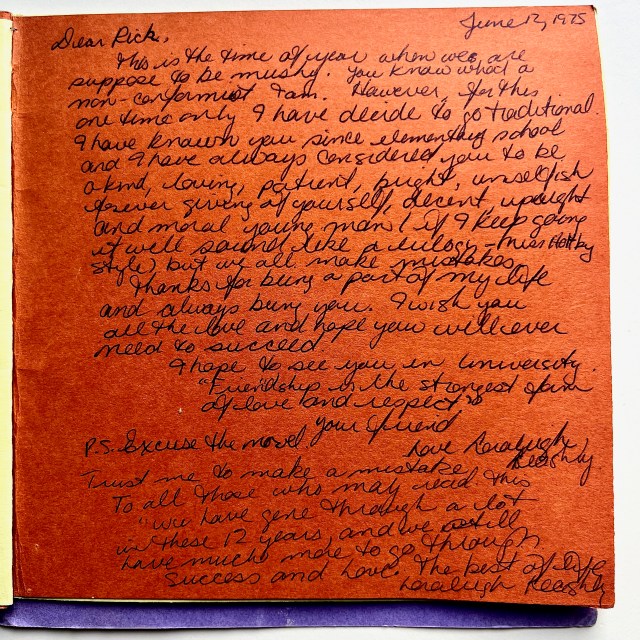 June 12, 1975
Dear Rick,
This is the time of year when we are
suppose to be mushy. You know what a
non-conformist I am. However, for this
one time only I have decide to go traditional.
I have known you since elementary school
and I have always considered you to be
a kind, loving, patient, bright, unselfish
forever giving of yourself, decent, upright
and moral young man (if I keep going
it will sound like a eulogy - Miss
style) but we all make mistakes.
Thanks for being a part of my life
and always being you. I wish you
all the love and hope you will ever
need to succeed
I hope to see you in University.
"Friendship is the strongest form
of love and respect"
your friend
P.S. Excuse the novel
Love Loraleigh
Keashly
Trust me to make a mistake
To all those who may read this
"We have gone through a lot
in these 12 years, and we still
have much more to go through
Success and Love, the best of life
Loraleigh Keashly